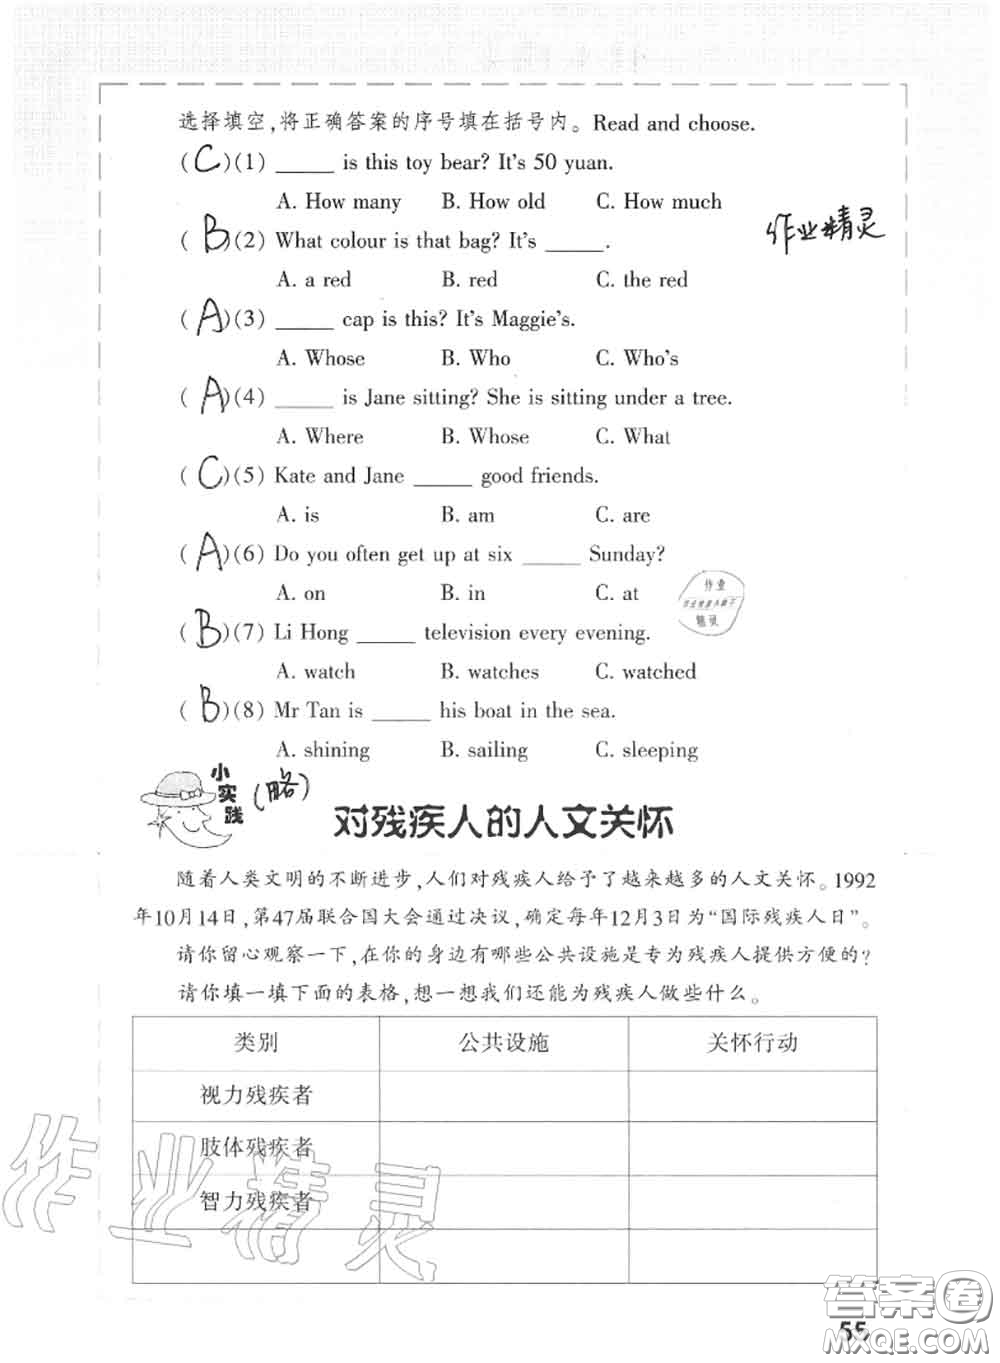 选择填空,将正确答案的序号填在括号内。Read and choose.
( C )(1) _____ is this toy bear? It's 50 yuan.
A. How many B. How old C. How much
作业精灵
( B )(2) What colour is that bag? It's _____.
A. a red B. red C. the red
( A )(3) _____ cap is this? It's Maggie's.
A. Whose B. Who C. Who's
( A )(4) _____ is Jane sitting? She is sitting under a tree.
A. Where B. Whose C. What
( C )(5) Kate and Jane _____ good friends.
A. is B. am C. are
( A )(6) Do you often get up at six _____ Sunday?
A. on B. in C. at
作业
精灵
( B )(7) Li Hong _____ television every evening.
A. watch B. watches C. watched
( B )(8) Mr Tan is _____ his boat in the sea.
A. shining B. sailing C. sleeping
小实践
(略)
对残疾人的人文关怀
随着人类文明的不断进步,人们对残疾人给予了越来越多的人文关怀。1992
年10月14日,第47届联合国大会通过决议,确定每年12月3日为“国际残疾人日”。
请你留心观察一下,在你的身边有哪些公共设施是专为残疾人提供方便的?
请你填一填下面的表格,想一想我们还能为残疾人做些什么。
类别 公共设施 关怀行动
视力残疾者
肢体残疾者
智力残疾者
作业精灵
答案卷
MXQE.COM
55